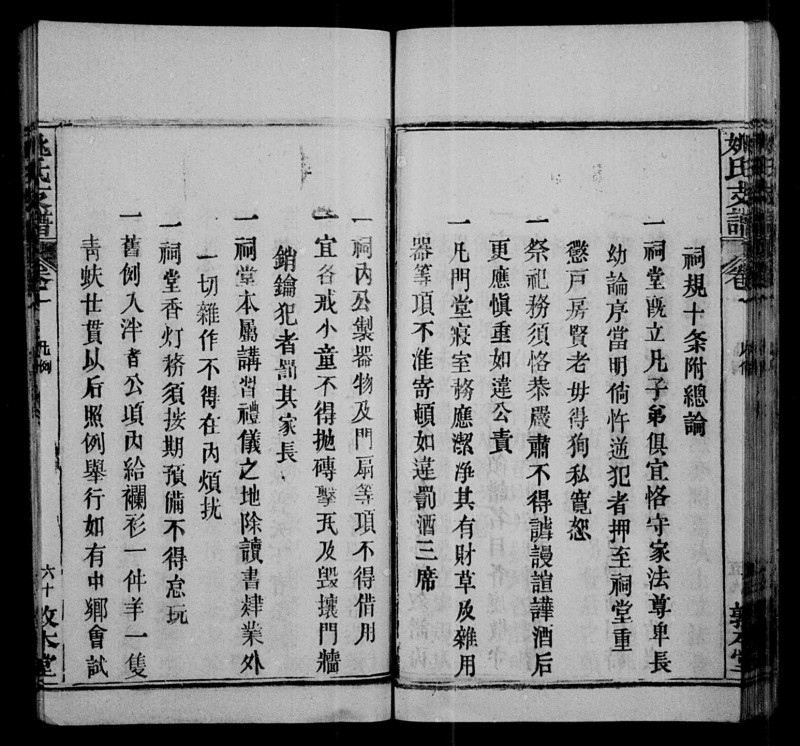 姚氏支譜
卷十
凡例
敦本堂
祠規十条附總論
一祠堂旣立凡子弟俱宜恪守家法尊卑長
幼論序當明倘忤逆犯者押至祠堂重
懲戸房賢老毋得狥私寬恕
一祭祀務須恪恭嚴肅不得謔謾諠譁酒后
更應愼重如違公責
一凡門堂寢室務應潔净其有財草及雜用
器等項不准寄頓如違罰酒三席
一祠內公製器物及門扇等項不得借用
一宜各戒小童不得抛磚擊瓦及毁壞門牆
銷鑰犯者罰其家長
一祠堂本屬講習禮儀之地除讀書肄業外
一切雜作不得在內煩扰
一祠堂香灯務須按期預備不得怠玩
一舊例入泮者公項內給襴衫一件羊一隻
靑蚨廿貫以后照例舉行如有中鄉會試
姚氏支譜
卷十
凡例
六十
敦本堂